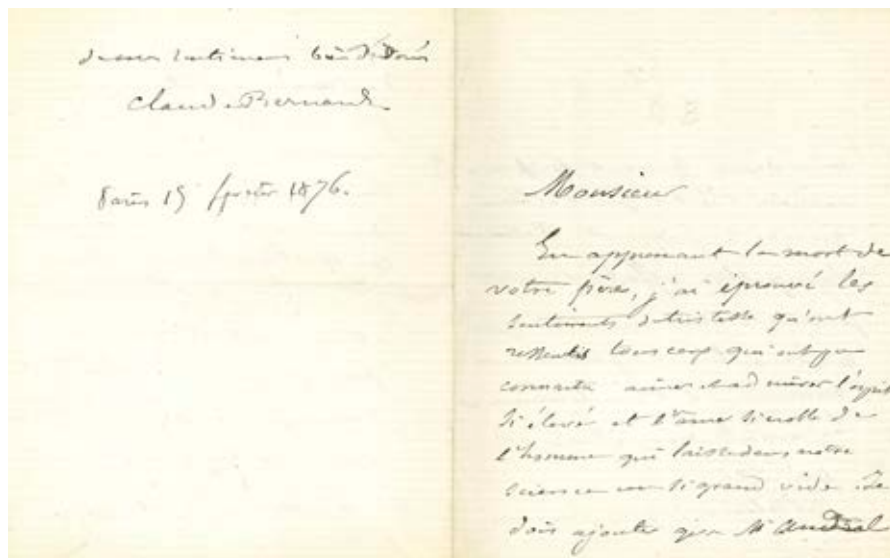 de mes sentiments bien dévoués
Claude Bernard
Paris 15 février 1876.
Monsieur
En apprenant la mort de
votre père, j'ai éprouvé les
sentiments de tristesse qu'ont
ressentis tous ceux qui ont pu
connaitre aimer et admirer l'esprit
si élevé et l'ame si noble de
l'homme qui laisse dans notre
science un si grand vide. Je
dois ajouter que Mr Andral